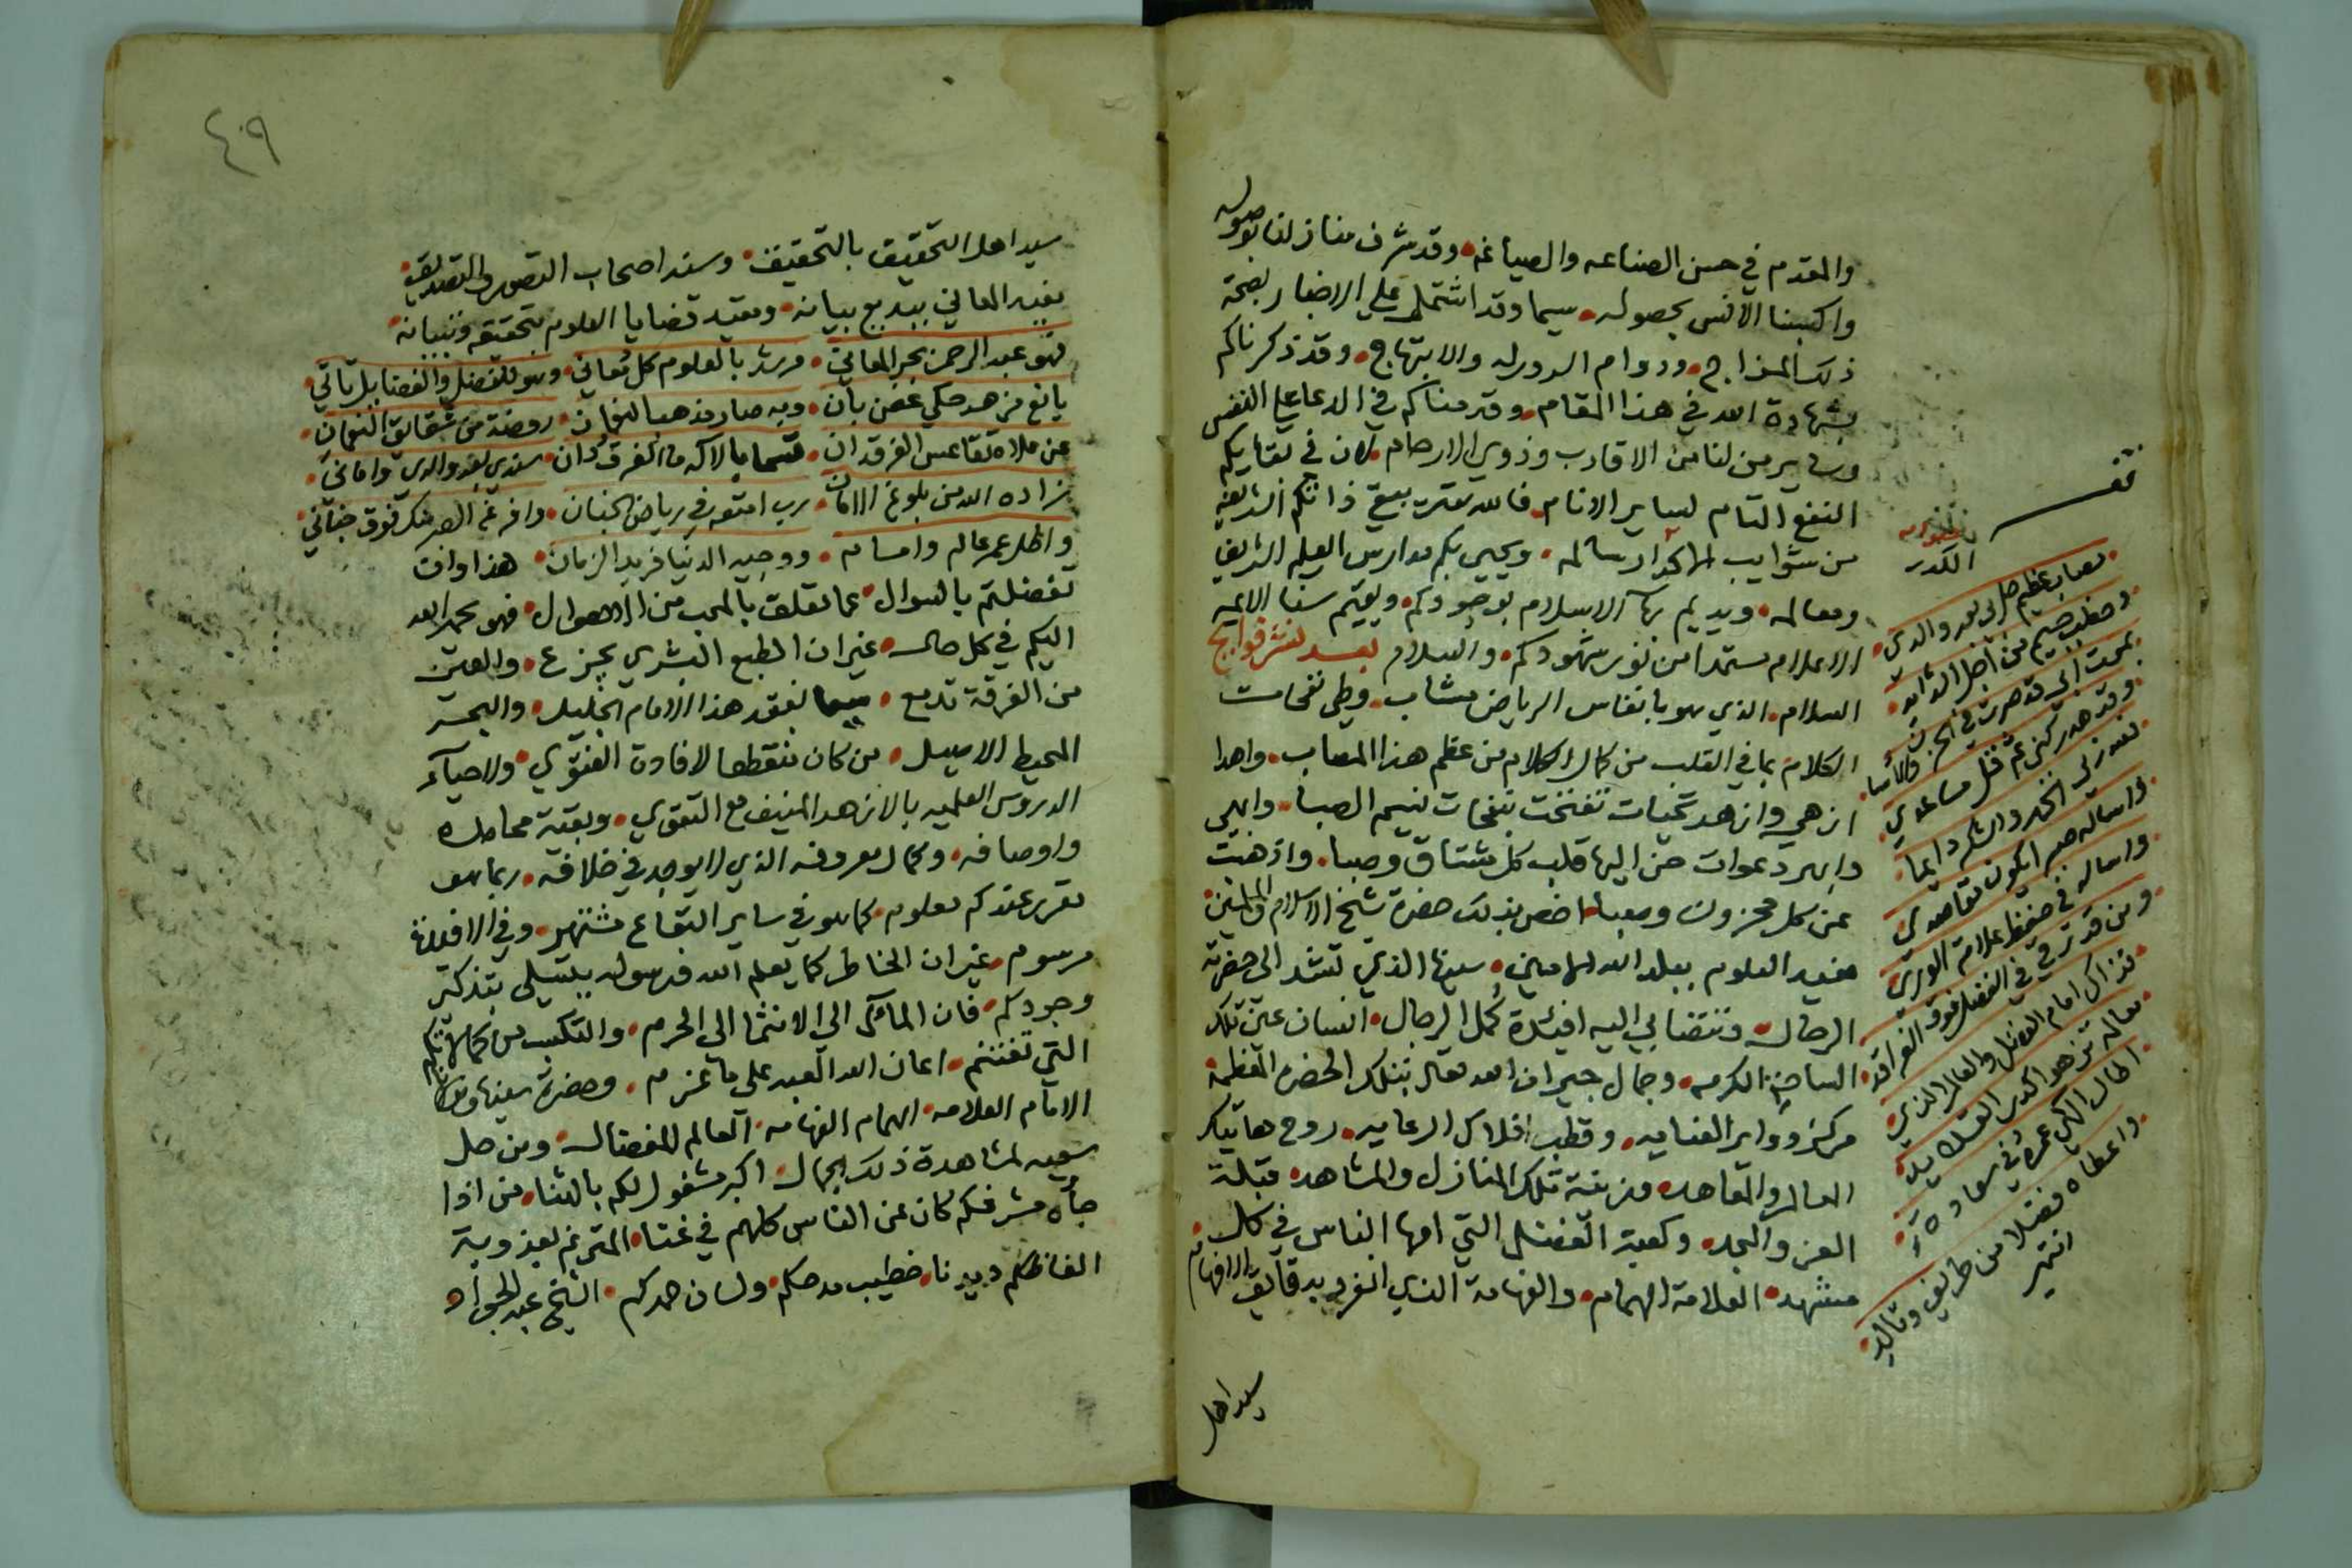 والمقدم في حسن الصناعه والصياغه وقد شرف منازلنا بوصوله
واكسبنا الانس بحصوله سيما وقد اشتمل علي الاخبار بصحة
ذلك المزاج ودوام السرور له والابتهاج وقد ذكرناكم
بشهادة الله في هذا المقام وقدمناكم في الدعا علي النفس
وساير من لنا من الاقارب وذوي الارحام لان في بقايكم
النفع التام لساير الانام فالله يبقي ذاتكم الشريفه
من شوايب الاكدار سالمه ويحيي بكم مدارس العلم الشريف
ومعالمه ويديم بهآ الاسلام بوجودكم ويقيم سنا الايمه
الاعلام مستمدا من نور شهودكم والسلام بعد نشر فوايح
السلام الذي هو بانفاس الرياض مشاب وطي نفحات
الكلام بما في القلب من كمال الكلام من عظم هذا المصاب واهدا
ازهي وازهر تحيات تفتحت بنفحات نسيم الصبا وابهي
وابهر دعوات حن اليها قلب كل مشتاق وصبا واذهبت
عن كل محزون وصبا اخص بذلك حضرة شيخ الاسلام والمسلمين
مفيد العلوم ببلد الله الامين سيدنا الذي تشد الى حضرته
الرحال وتنضا بي اليه افيدة كمل الرجال انسان عين تلك
الساحة الكرمه وجمال جيران الله تعالى بتلك الحضره العظمة
مركز دواير العنايه وقطب افلاك الرعايه روح هاتيك
العالم والمعاهد وزينة تلك المنازل والمشاهد قبلة
العز والمجد وكعبة الفضل التي امها الناس في كل
مشهد العلامة الهمام والفهامة الذي انفرد بدقايق الافهام
سيد اهل
الكدر
مصاب عظيم حل بي بعد والدي
وخطب جسيم من اجل الشدايد
بموت ابي قد صرت في الحزن والاسا
وقد هد ركني ثم قل مساعدي
فلله ربي الحمد والشكر دايما
واساله صبرا يكون مقاصدي
واساله في حفظ علامة الوري
ومن قد ترقي في الفضل فوق الفراقد
بذاك امام الفضل والعالم الذي
اطال الهي عمره في سعادة
واعطاه فضلا من طريف وتالد
انتهى
٤٠٩
سيد اهل التحقيق بالتحقيق وسند اصحاب التصور والتصديق
مفيد المعاني ببديع بيانه ومقيد قضايا العلوم بتحقيقه وتبيانه
فهو عبد الرحمن بحر المعاني مرشد بالعلوم كل معاني وهو للفضل والفضايل تاتي
يانع زهد حكي غصن بان وبه صار مذهب النعمان روضة من شقايق النعمان
عن علاه تقاعس الفرقدان قسما بالاله ما الفرقدان سندي بعد والدي واماني
زاده الله من بلوغ الاماني رب امتعه في رياض الجنان وافرغ الصبر منك فوق جناني
واطل عمر عالم وامام ووحيد الدنيا فريد الزمان هذا وان
تفضلتم بالسوال عما تعلق بالمحب من الاحوال فهو بحمد الله
اليكم في كل حال غير ان الطبع البشري يجزع والعين
من الفرقة تدمع سيما بفقد هذا الامام الجليل والبحر
المحيط الاصيل من كان منقطعا لافادة الفتوي ولاحيآء
الدروس العلميه بالازهد المنيف مع التقوي وبقية محامده
واوصافه وكمال معروفه الذي لا يوجد في خلافه ربما هو
مقرر عندكم معلوم كما هو في ساير البقاع مشتهر وفي الافئدة
مرسوم غير ان الخاطر كما يعلم الله فدهوله يتسلي بتذكر
وجودكم فان المآل الي الانتما الي الحرم والتكسب من كمالاتكم
التي تغتنم اعان الله العبد على ما عزم وحضرة سيدنا ومولانا
الامام العلامه الهمام الفهامه العالم المفضال ومن حل
سعيه لمشاهدة ذلك الجمال اكبر مشغول لكم بالثنا من اذا
جآه مشرفكم كان عن الناس كلهم في غنا المترنم بعذوبة
الفاظكم ديدنا خطيب مدحكم ولسان حمدكم الشيخ عبد الجواد